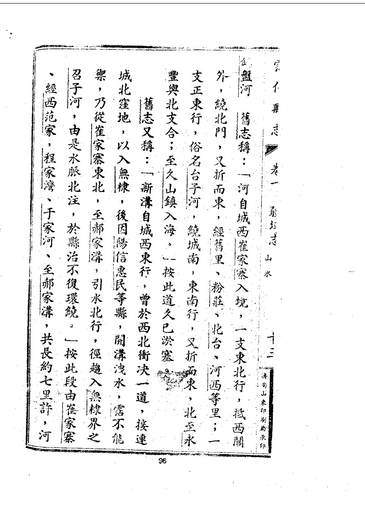 雲化縣志
卷一
疆域志
山水
十三
濟南山東印刷局承印
盤河　舊志稱：「河自城西崔家寨入境，一支東北行，抵西關
外，繞北門，又折而東，經舊里、粉莊、北台、河西等里；一
支正東行，俗名台子河，繞城南，東南行，又折而東，北至永
豐與北支合；至久山鎮入海。」按此道久已淤塞
舊志又稱：「新溝自城西東行，曾於西北衝決一道，接連
城北窪地，以入無棣，後因陽信惠民等縣，開溝洩水，霑不能
禦，乃從崔家寨東北，至郝家溝，引水北行，徑趨入無棣界之
召子河，由是水脈北注，於縣治不復環繞。」按此段由崔家寨
、經西范家，程家灣、于家河、至郝家溝，共長約七里許，河
96